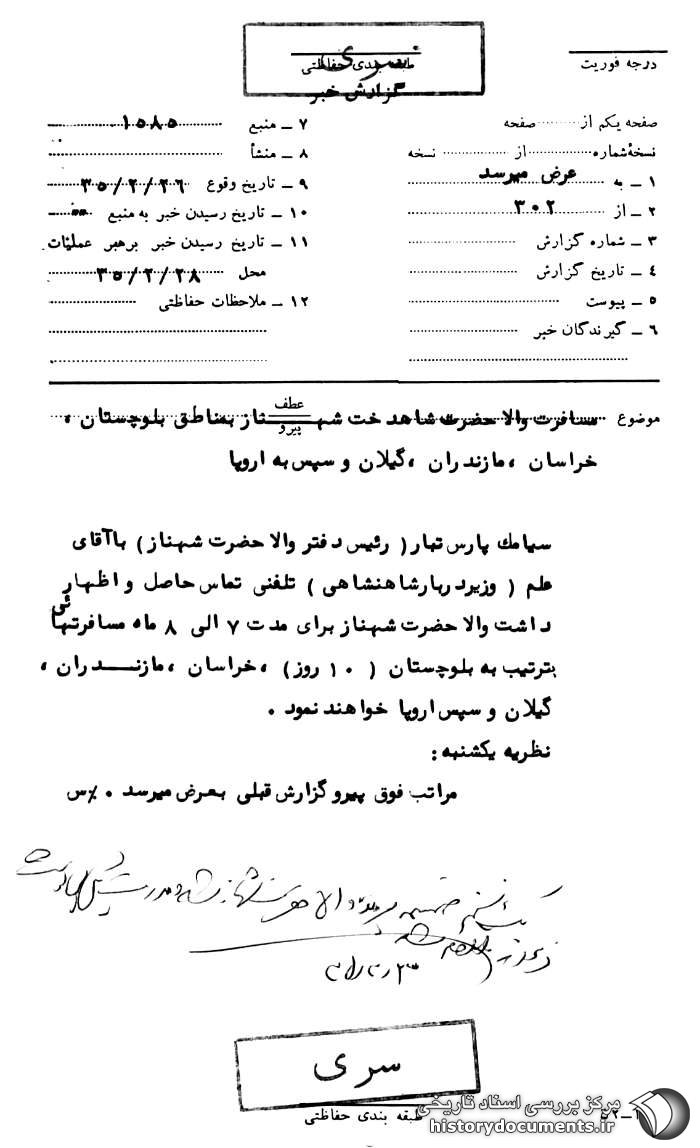 سری
طبقه بندی حفاظتی
گزارش خبر
درجه فوریت
صفحه یکم از ........ صفحه
نسخهٔ شماره ........ از ........ نسخه
۱ ــ به عرض میرسد
۲ ــ از ۳۰۲
۳ ــ شماره گزارش
۴ ــ تاریخ گزارش
۵ ــ پیوست
۶ ــ گیرندگان خبر
۷ ــ منبع ۱۵۸۵
۸ ــ منشأ
۹ ــ تاریخ وقوع ۳۵/۲/۲۶
۱۰ ــ تاریخ رسیدن خبر به منبع
۱۱ ــ تاریخ رسیدن خبر برهبر عملیات
محل ۳۵/۲/۲۸
۱۲ ــ ملاحظات حفاظتی
عطف
پیرو
موضوع مسافرت والاحضرت شاهدخت شهناز بمناطق بلوچستان ،
خراسان ، مازندران ، گیلان و سپس به اروپا
سیامك پارس تبار ( رئیس دفتر والاحضرت شهناز ) باآقای
علم ( وزیر دربار شاهنشاهی ) تلفنی تماس حاصل و اظهار
داشت والاحضرت شهناز برای مدت ۷ الی ۸ ماه مسافرتهائی
بترتیب به بلوچستان ( ۱۰ روز ) ، خراسان ، مازندران ،
گیلان و سپس اروپا خواهند نمود .
نظریه یکشنبه :
مراتب فوق پیرو گزارش قبلی بعرض میرسد . /س
سری
طبقه بندی حفاظتی
مرکز بررسی اسناد تاریخی
historydocuments.ir